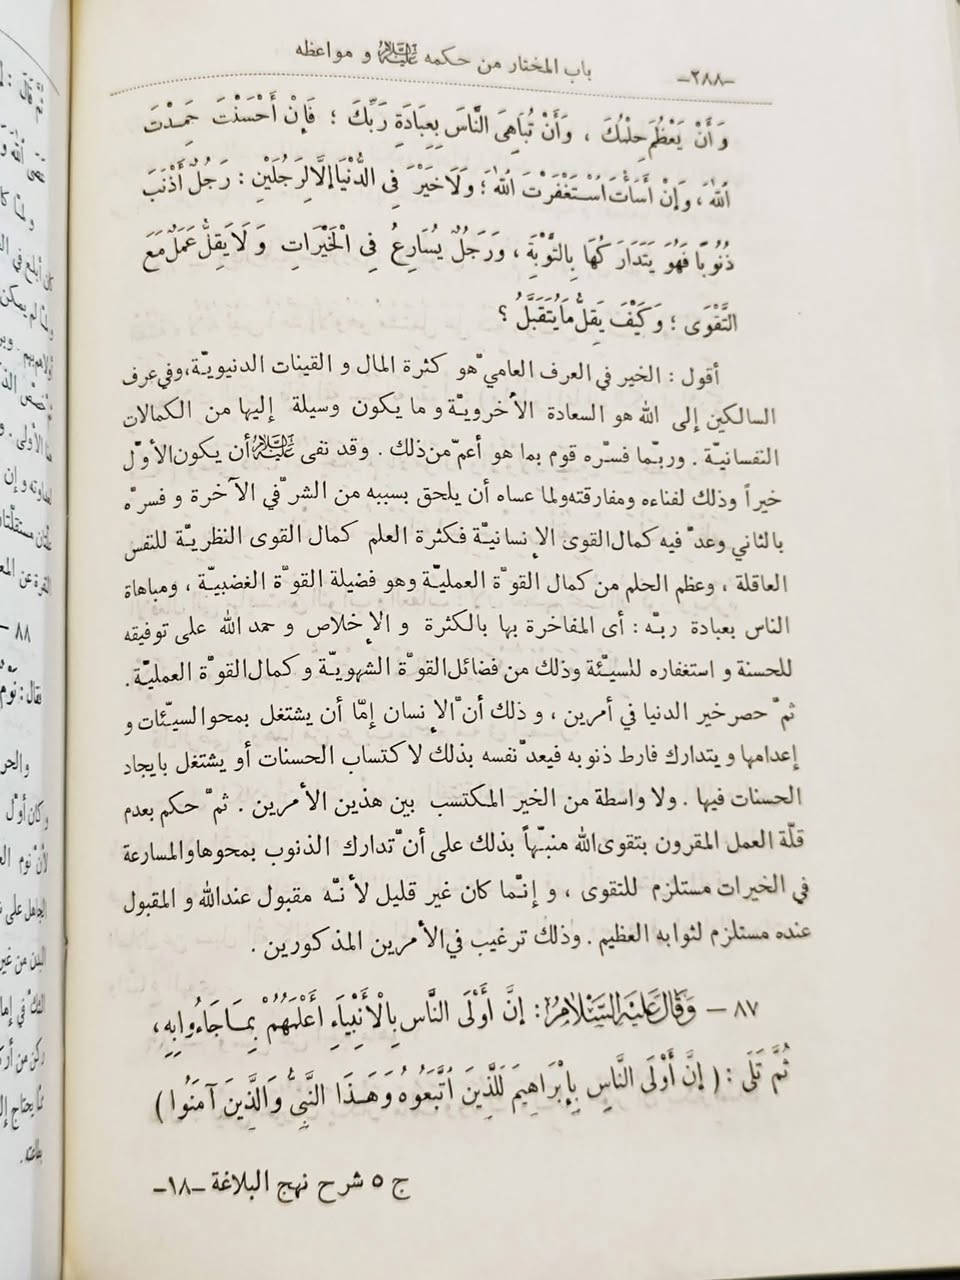 -٢٨٨- باب المختار من حكمه عليه السلام و مواعظه
وَ أَنْ يَعْظُمَ حِلْمُكَ ، وَأَنْ تُبَاهِىَ النَّاسَ بِعِبَادَةِ رَبِّكَ ؛ فَإِنْ أَحْسَنْتَ حَمِدْتَ
اللهَ ، وَإِنْ أَسَأْتَ اسْتَغْفَرْتَ اللهَ ؛ وَلَاخَيْرَ فِى الدُّنْيَا إِلَّا لِرَجُلَيْنِ : رَجُلٌ أَذْنَبَ
ذُنُوبًا فَهُوَ يَتَدَارَكُهَا بِالتَّوْبَةِ ، وَرَجُلٌ يُسَارِعُ فِى الْخَيْرَاتِ وَلَا يَقِلُّ عَمَلٌ مَعَ
التَّقْوَى ؛ وَكَيْفَ يَقِلُّ مَا يُتَقَبَّلُ ؟
أقول : الخير في العرف العامي ّهو كثرة المال و القينات الدنيويـّة،وفي عرف
السالكين إلى الله هو السعادة الأخرويـّة و ما يكون وسيلة إليها من الكمالات
النفسانيـّة . وربـّما فسـّره قوم بما هو أعمّ من ذلك . وقد نفى عليه السلام أن يكون الأوّل
خيراً وذلك لفنائه ومفارقته ولما عساه أن يلحق بسببه من الشر ّفي الآخرة و فسر ّه
بالثاني وعد ّ فيه كمال القوى الإنسانيـّة فكثرة العلم كمال القوى النظريـّة للنفس
العاقلة ، وعظم الحلم من كمال القو ّة العمليـّة وهو فضيلة القو ّة الغضبيـّة ، ومباهاة
الناس بعبادة ربـّه : أى المفاخرة بها بالكثرة و الإخلاص و حمد الله على توفيقه
للحسنة و استغفاره للسيـّئة وذلك من فضائل القو ّة الشهويـّة و كمال القو ّة العمليـّة .
ثم ّ حصر خير الدنيا في أمرين ، و ذلك أن ّ الإنسان إمـّا أن يشتغل بمحو السيـّئات و
إعدامها و يتدارك فارط ذنوبه فيعد ّ نفسه بذلك لاكتساب الحسنات أو يشتغل بايجاد
الحسنات فيها . ولا واسطة من الخير المكتسب بين هذين الأمرين . ثم ّ حكم بعدم
قلّة العمل المقرون بتقوى الله منبـّهاً بذلك على أن ّ تدارك الذنوب بمحوها والمسارعة
في الخيرات مستلزم للتقوى ، و إنـّما كان غير قليل لأنـّه مقبول عندالله و المقبول
عنده مستلزم لثوابه العظيم . وذلك ترغيب في الأمرين المذكورين .
٨٧ – وَقَالَ عَلَيْهِ السَّلَامُ : إِنَّ أَوْلَى النَّاسِ بِالْأَنْبِيَاءِ أَعْلَمُهُمْ بِمَا جَاءُوا بِهِ ،
ثُمَّ تَلَى : ( إِنَّ أَوْلَى النَّاسِ بِإِبْرَاهِيمَ لَلَّذِينَ اتَّبَعُوهُ وَهَـذَا النَّبِىُّ وَالَّذِينَ آمَنُوا )
ج ٥ شرح نهج البلاغة -١٨-